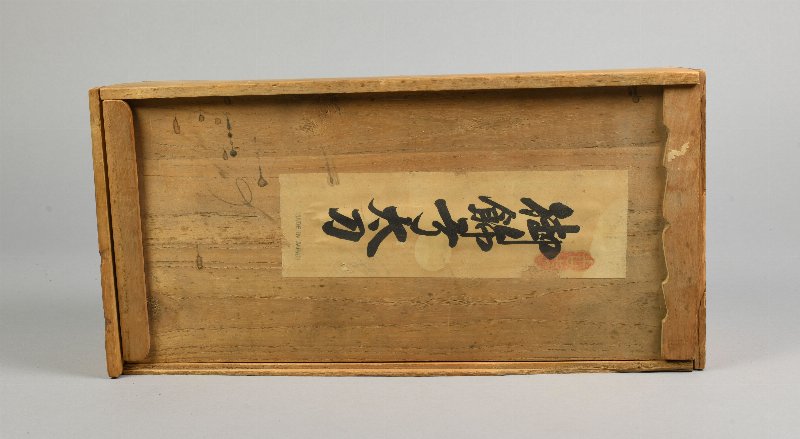 御飾弓太刀
MADE IN JAPAN